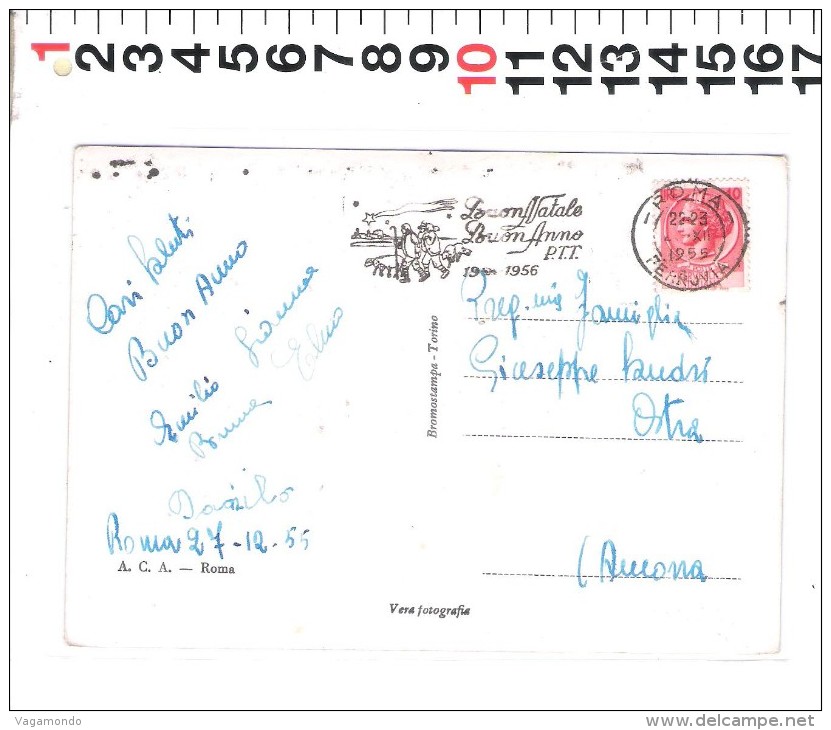 1 2 3 4 5 6 7 8 9 10 11 12 13 14 15 16 17
Buon Natale
Buon Anno
P.T.T.
1956
ROMA
22-23
XII
1955
FERROVIA
Cari saluti
Buon Anno
Gianna
Emilio
Danilo
Roma 27-12-55
A. C. A. — Roma
Bromostampa - Torino
Vera fotografia
Preg. Famiglia
Giuseppe
Ostra
(Ancona
Vagamondo
www.delcampe.net